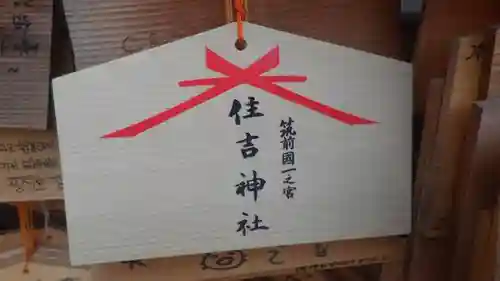 筑前國一之宮
住吉神社